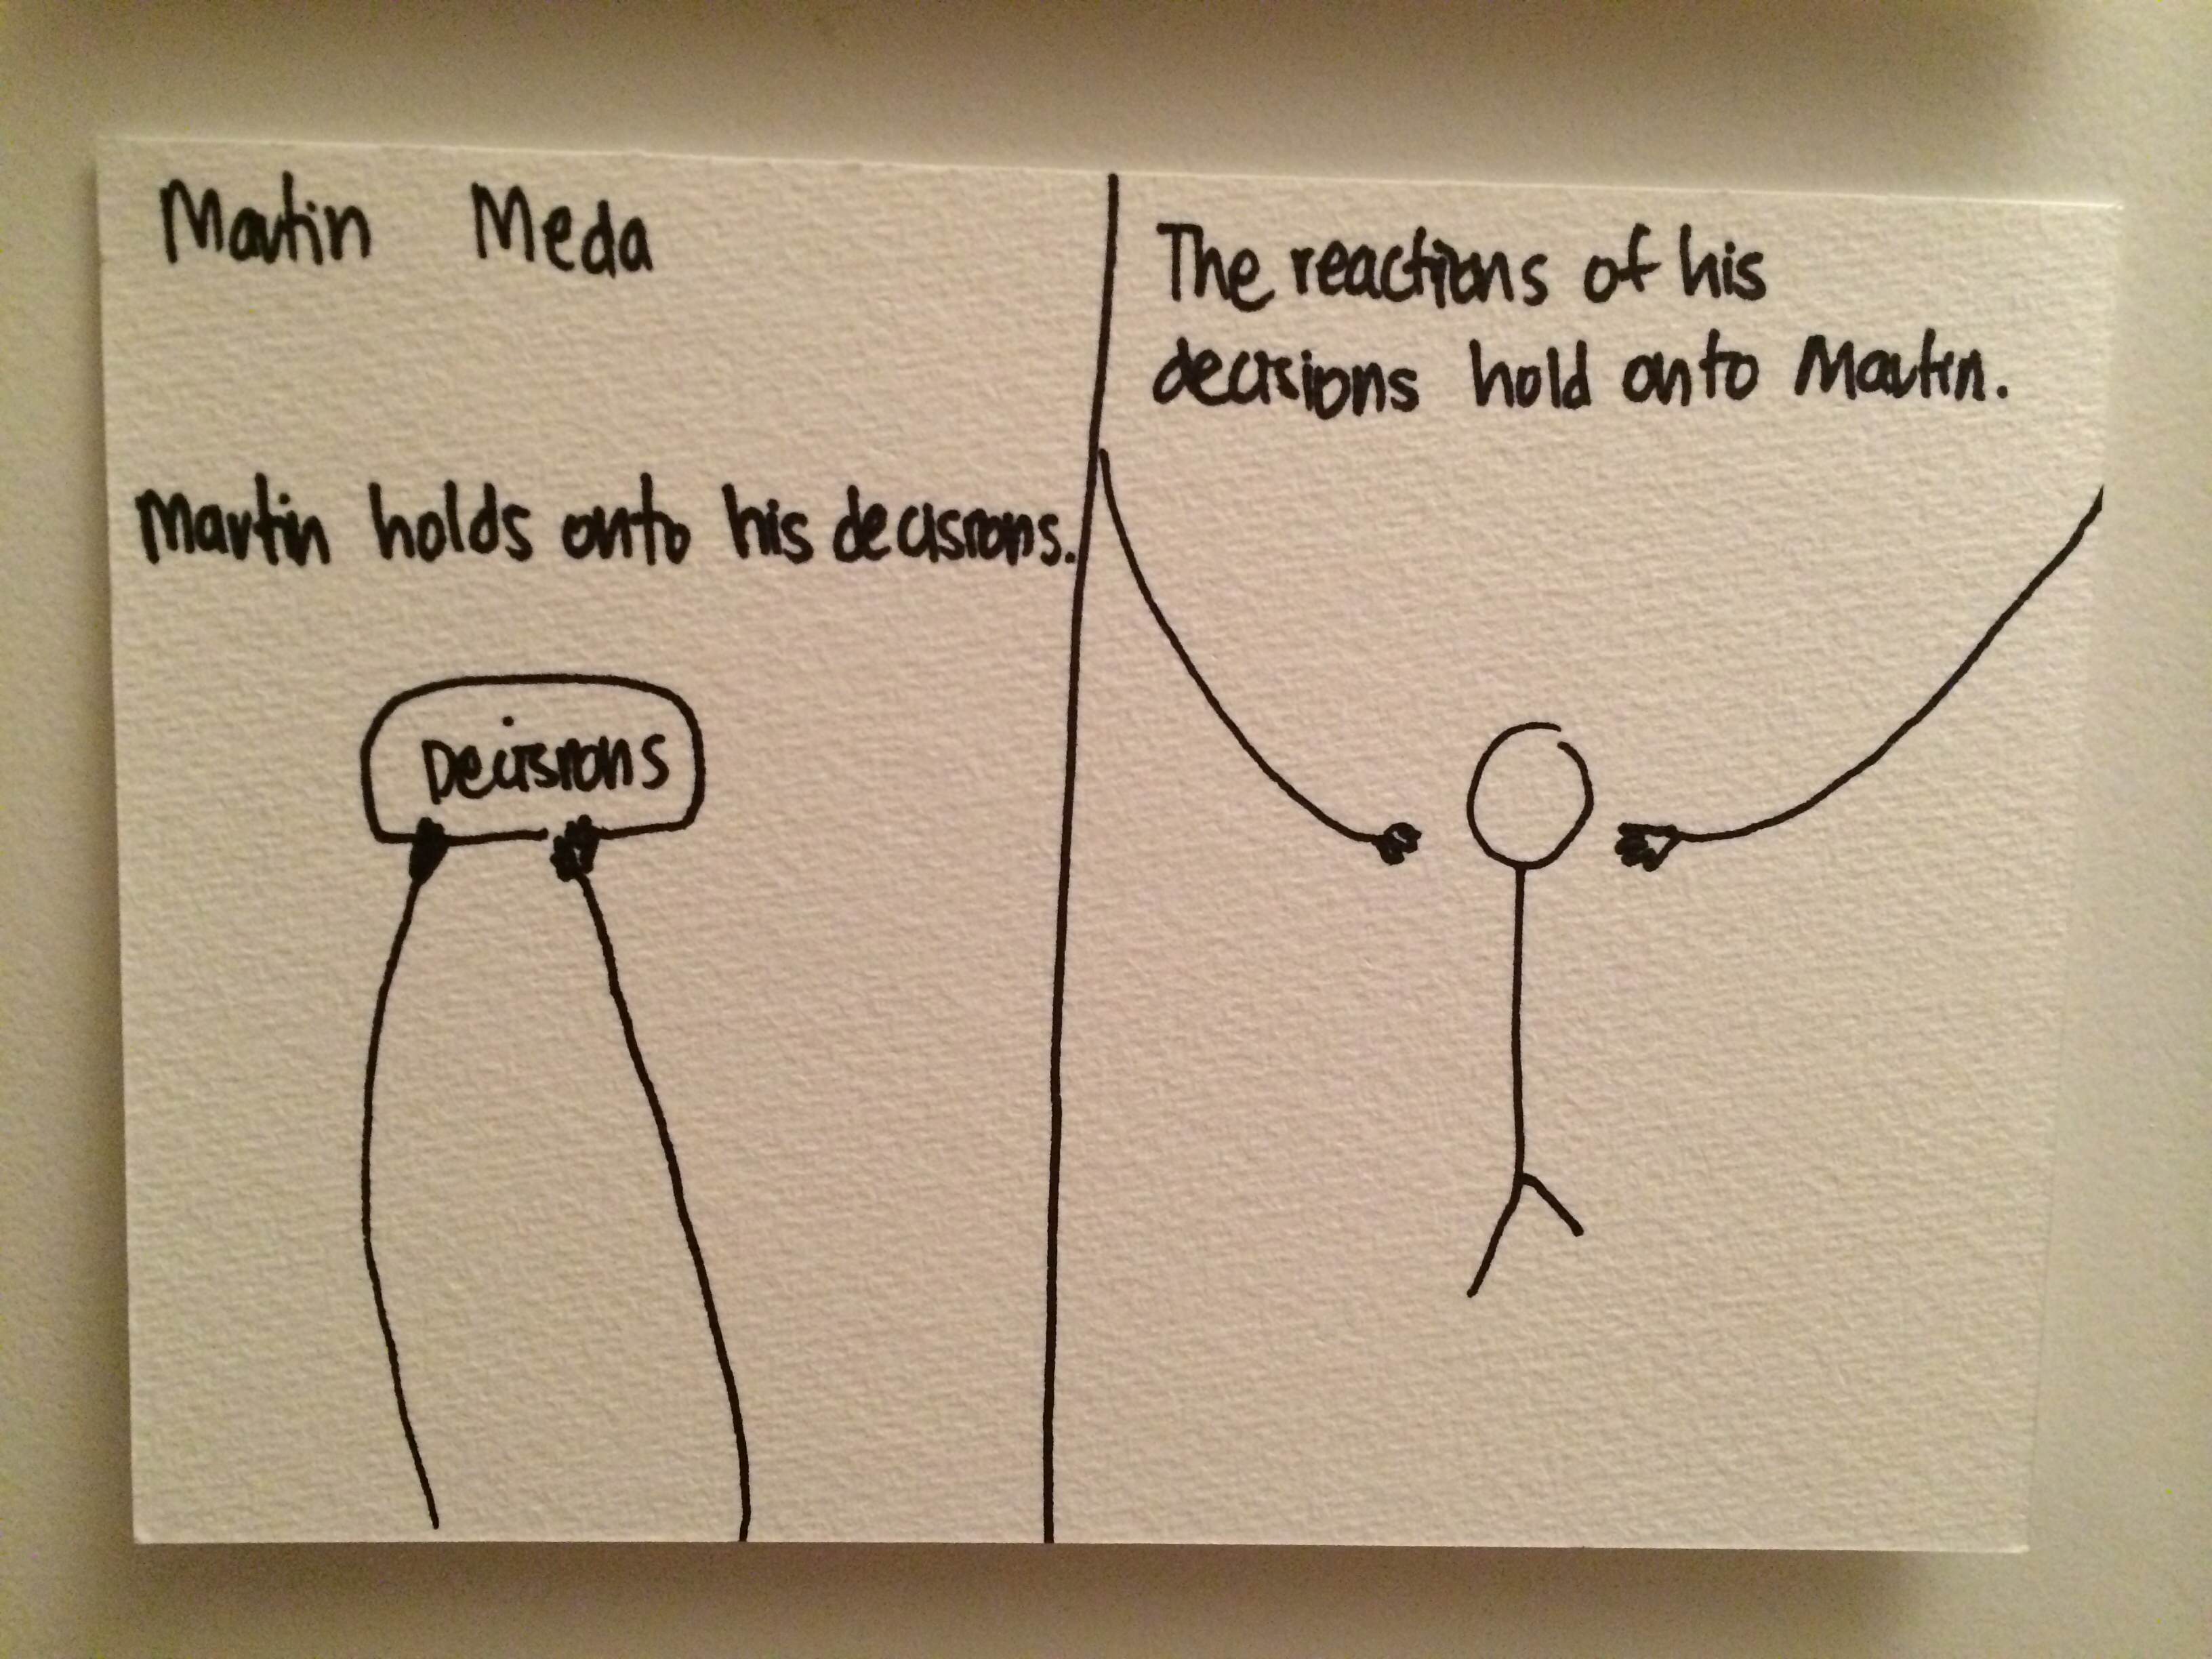 Martin Meda
Martin holds onto his decisions.
Decisions
The reactions of his
decisions hold onto Martin.